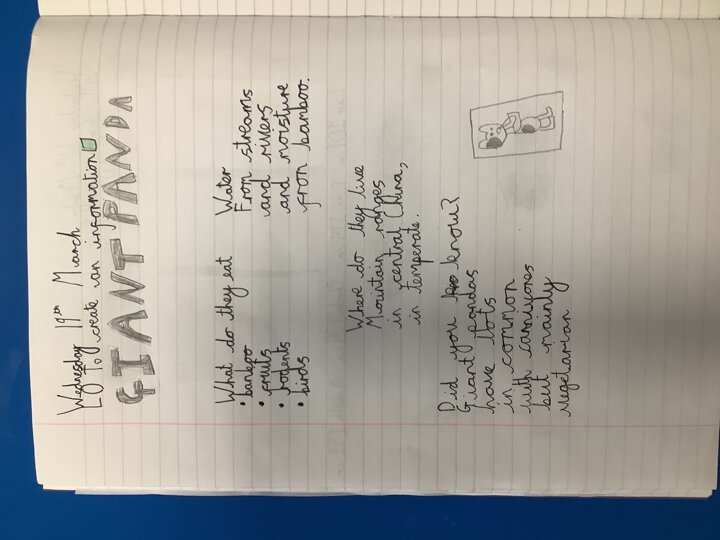 Wednesday 19th March
L To create an information
GIANT PANDA
What do they eat
• bamboo
• fruits
• rodents
• birds
Water
From streams
and rivers
and moisture
from bamboo.
Where do they live
Mountain ranges
in central China,
in temperate.
Did you know?
Giant Pandas
have lots
in common
with carnivores
but mainly
vegetarian